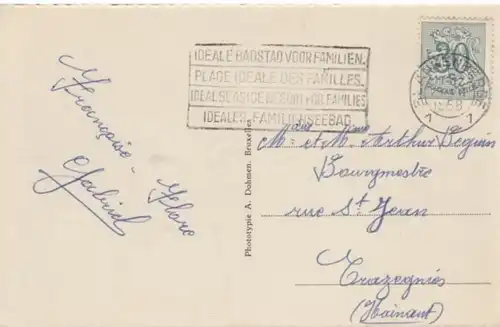 IDEALE BADSTAD VOOR FAMILIEN.
PLAGE IDEALE DES FAMILLES.
IDEAL SEASIDE RESORT FOR FAMILIES
IDEALES FAMILIENSEEBAD.
20
1 1
Françoise -
Gabriel
Phototypie A. Dohmen, Bruxelles
M. et M. Arthur Bequin
Bourgmestre
rue St Jean
Trazegnies
(Hainaut)